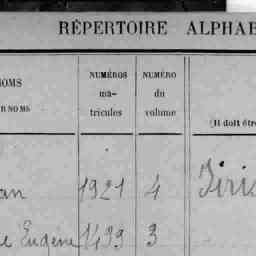 RÉPERTOIRE ALPHAB
NOMS
RNOMS
NUMÉROS
ma-
tricules
NUMÉRO
du
volume
(Il doit être
an 1921 4
e Eugène 1499 3